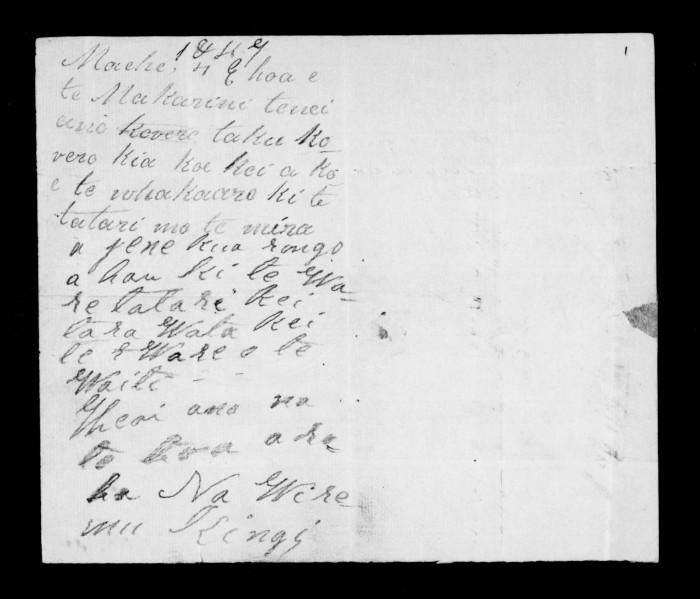 1
1849
Maehe. 4 E hoa e
te Makarini tenei
ano korero taku ko-
rero kia koe kei a ko
e te whakaaro ki te
tatari mo te mira
a jene kua rongo
a hau ki te Wa-
re tatari kei
tara Wata kei
te Ware o te
Waiti - -
Kheoi ano na
to hoa aro-
ha Na Wire-
mu Kingi